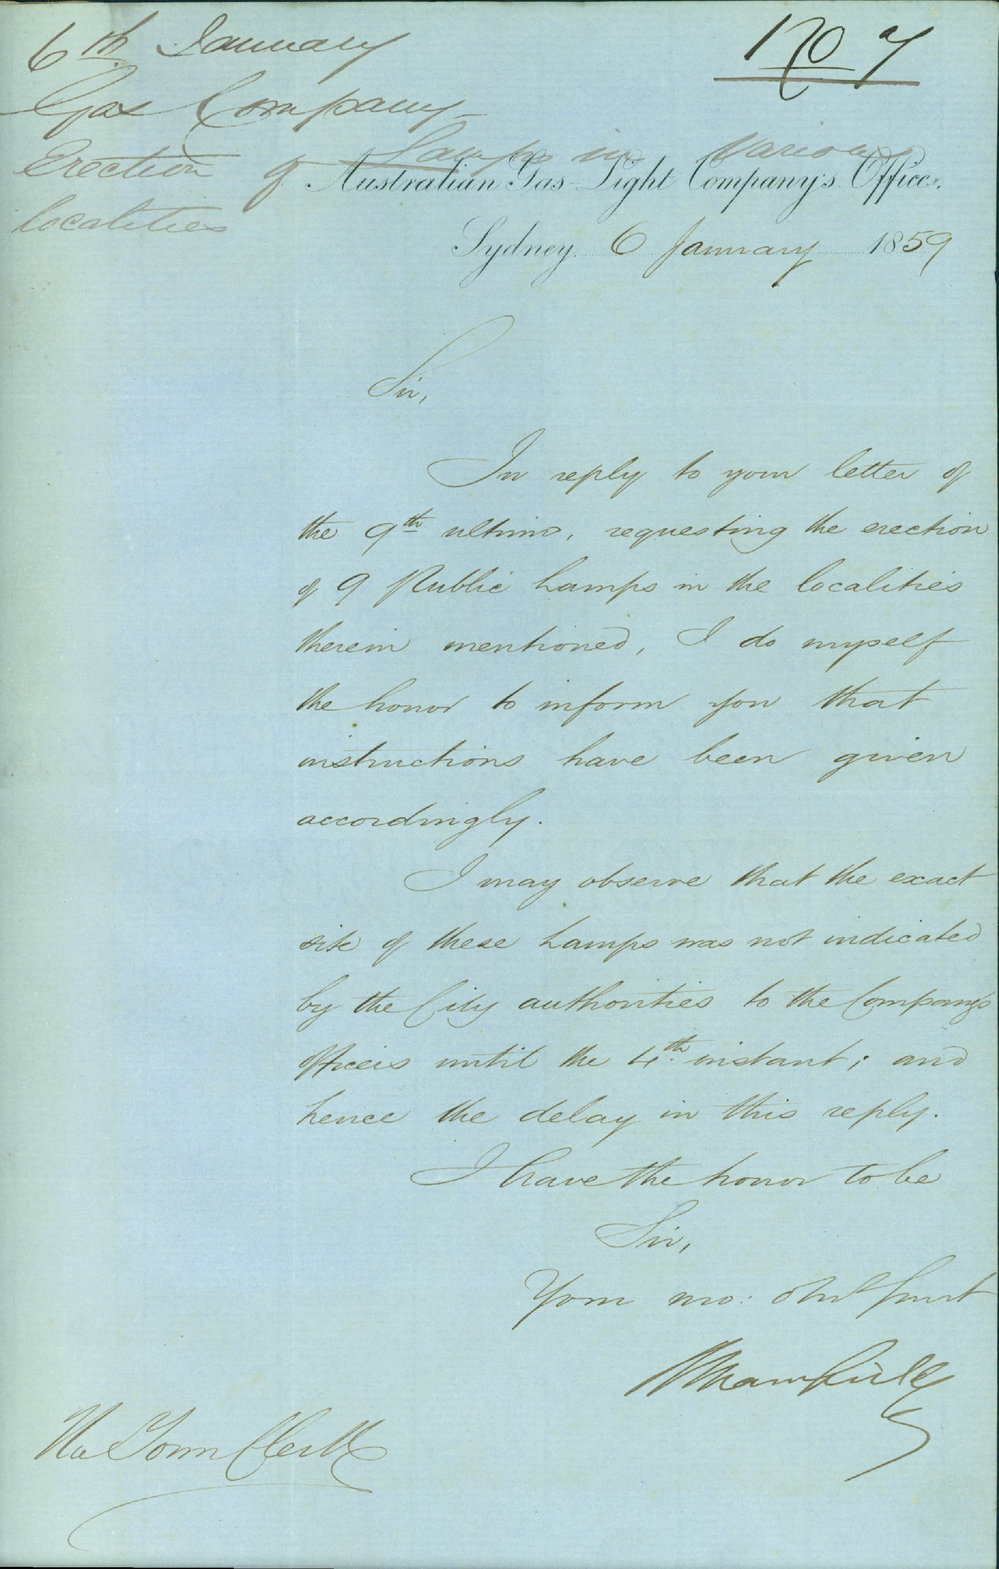 6th January
170 7
Gas Company
Erection of Lamps in various
localities
Australian Gas Light Company's Office.
Sydney. 6 January 1859
Sir,
In reply to your letter of
the 9th ultimo, requesting the erection
of 9 Public Lamps in the localities
therein mentioned, I do myself
the honor to inform you that
instructions have been given
accordingly.
I may observe that the exact
site of these Lamps was not indicated
by the City authorities to the Company's
officers until the 4th instant; and
hence the delay in this reply.
I have the honor to be
Sir,
Your mo: obt Servt
The Town Clerk